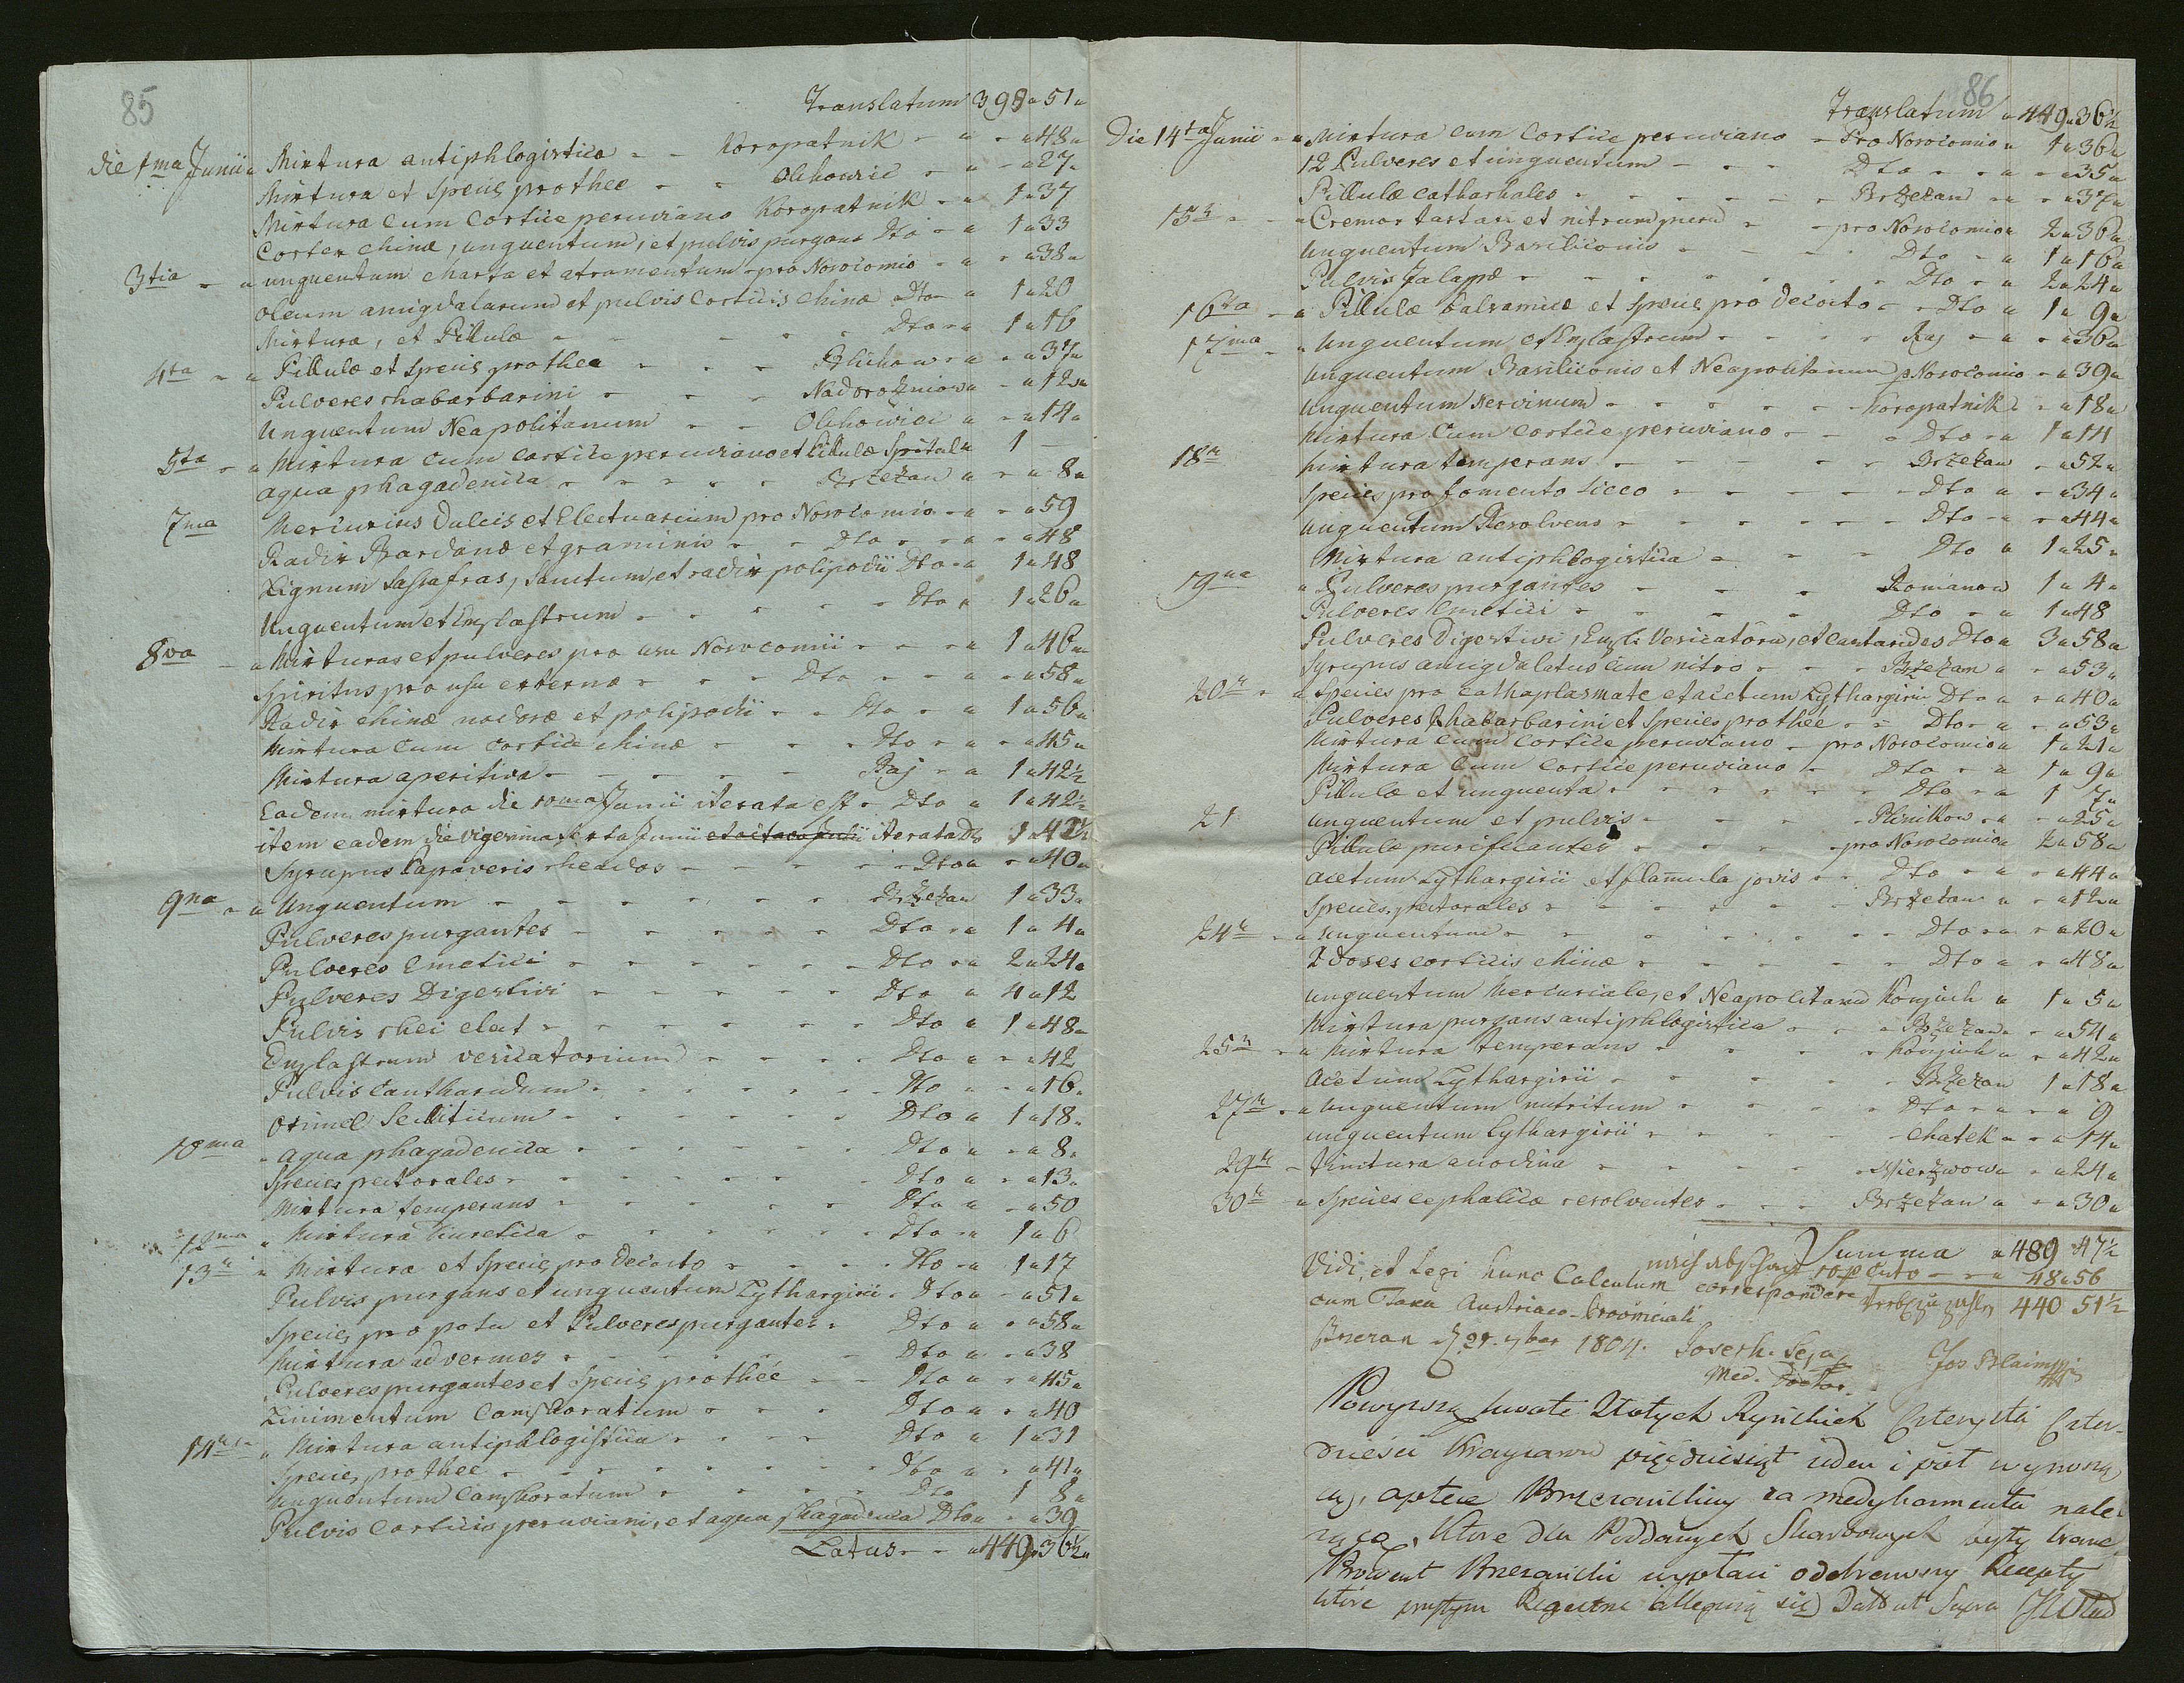 85
Translatum 398 " 51 "
die 1ma Junii " Mixtura antiphlogistica - - Koropatnik - " - " 48 "
Mixtura et species pro thee - - Olchowiec - " - " 27 "
Mixtura cum Cortice peruviano Koropatnik - " 1 " 37
Cortex chinæ, unguentum, et pulvis purgans Dto - " 1 " 33
3tia - " unguentum charta et atramentum - pro Nosocomio - " - " 38 "
Oleum amigdalarum et pulvis Corticis chinæ Dto - " 1 " 20
Mixtura, et Pillulæ - - - - Dto - " 1 " 16
4ta - " Pillulæ et species pro thea - - - " - " 37 "
Pulveres rhabarbarini - - - Nadorożniow " - " 12 "
Unguentum Neapolitanum - - Olchowiec " - " 14 "
5ta - " Mixtura cum cortice peruviano et Pillulæ Spital " 1 -
aqua phagadenica - - - - - Brzeżan " - " 8 "
7ma Mercurius Dulcis et Electuarium pro Nosocomio - " - " 59
Radix Bardanæ et graminis - - Dto - - " - " 48
Lignum Sassafras, Sanctum, et radix polipodii Dto - " 1 " 48
Unguentum et Emplastrum - - - - - Dto " 1 " 26 "
8va - " Mixturas et pulveres pro usu Nosocomii - - - " 1 " 46 "
Spiritus pro usu externo - - - Dto - - " - " 58 "
Radix chinæ nodosæ et polipodii - - Dto - " 1 " 56 "
Mixtura cum cortice chinæ - - - Dto - " - " 45 "
Mixtura aperitiva - - - - - Raj - " 1 " 42½
Eadem mixtura die 10ma Junii iterata est - Dto " 1 " 42½
item eadem die vigesima sexta Junii iterata Dto 1 " 42½
Syrupus Papaveris rheados - - - - - Dto " - " 40 "
9na - " Unguentum - - - - - - Brzeżan 1 " 33 "
Pulveres purgantes - - - - - Dto - " 1 " 4 "
Pulveres Emetici - - - - - - Dto - " 2 " 24 "
Pulveres Digestivi - - - - - Dto " 4 " 12
Pulvis rhei elect - - - - - - Dto " 1 " 48 "
Emplastrum vesicatorium - - - - Dto " - " 42
Pulvis Cantharidum - - - - - - Dto " - " 16 "
Oximel Scilliticum - - - - - - Dto " 1 " 18 "
10ma - aqua phagadenica - - - - - - Dto " - " 8 "
Species pectorales - - - - - - - Dto " - " 13 "
Mixtura temperans - - - - - - Dto " - " 50
12ma " Mixtura Diuretica - - - - - - Dto - " 1 " 6
13a " Mixtura et species pro Decocto - - - - Dto - " 1 " 17
Pulvis purgans et unguentum Lythargirii - Dto " - " 51 "
Species pro potu et Pulveres purgantes - Dto " - " 58 "
Mixtura ad vermes - - - - - - Dto " - " 38
Pulveres purgantes et species pro thée - - Dto " - " 45 "
Linimentum Camphoratum - - - Dto " - " 40
14ta " Mixtura antiphlogistica - - - - Dto " 1 " 31
Species pro thee - - - - - - - Dto " - " 41 "
Unguentum Camphoratum - - - - Dto 1 8 "
Pulvis Corticis peruviani, et aqua phagadenica Dto " - " 39
Latus - - " 449 " 36½ "
86
Translatum " 449 " 36½
Die 14ta Junii - " Mixtura cum Cortice peruviano - Pro Nosocomio " 1 " 36 "
12 Pulveres et unguentum - - - Dto - - " - " 35 "
Pillulæ catharhales - - - - - - Brzeżan - " - " 37 "
15a - - " Cremor tartari et nitrum purum - - pro Nosocomio " 2 " 36 "
Unguentum Basiliconis - - - - Dto - " 1 " 16 "
Pulvis Jalappæ - - - - - - Dto - " 2 " 24 "
16ta - " Pillulæ balsamicæ et species pro Decocto - - Dto " 1 " 9 "
17ma - " Unguentum et Emplastrum - - - - Raj - " - " 36 "
Unguentum Basiliconis et Neapolitanum p Nosocomio - " 39 "
Unguentum Nervinum - - - - - - Koropatnik - " 18 "
Mixtura Cum cortice peruviano - - - Dto - " 1 " 14
18a Mixtura temperans - - - - - Brzeżan - " 52 "
Species pro fomento sicco - - - - - Dto " - " 34 "
Unguentum Resolvens - - - - - - Dto - " - " 44 "
Mixtura antiphlogistica - - - - Dto " 1 " 25 "
19na " Pulveres purgantes - - - Romanow 1 " 4 "
Pulveres Emetici - - - - Dto - " 1 " 48
Pulveres Digestivi, Empl. Vesicatorium, et cantarides Dto " 3 " 58 "
Syrupus amigdalatus cum nitro - - - Brzeżan " - " 53 "
20a - " Species pro cathaplasmate et acetum Lythargirii Dto " - " 40 "
Pulveres Rhabarbarini et Species pro thée - - Dto - " - " 53 "
Mixtura cum Cortice peruviano - pro Nosocomio " 1 " 21 "
Mixtura Cum Cortice peruviano - Dto - " 1 " 9 "
Pillulæ et unguenta - - - - - - Dto - " 1 7 "
21 unguentum et pulvis - - - - - " - " 25 "
Pillulæ purificantes - - - - - pro Nosocomio " 2 " 58 "
Acetum Lythargirii et flamula jovis - - Dto - " - " 44 "
Species pectorales - - - - - - Brzeżan " - " 12 "
24a - " unguentum - - - - - - - Dto - " - " 20 "
2 doses corticis chinæ - - - - - - Dto " - " 48 "
unguentum Mercuriale, et Neapolitanum " 1 " 5 "
Mixtura purgans antiphlogistica - - - Brzeżan - " 54 "
25a - " Mixtura temperans - - - - - " - " 42 "
Acetum Lythargirii - - - - - - Brzeżan 1 " 18 "
27a - " Unguentum nutritum - - - - - Dto - " - " 9
unguentum Lythargirii - - - - - - Chatek " - " 14 "
29a - tinctura anodina - - - - - - " - " 24 "
30a " Species cephalicæ resolventes - - - Brzeżan " - " 30 "
Summa " 489 " 47½
10 p Cnto - - " 48 " 56
440 51½
Vidi, et Legi hunc Calculum correspondere
cum Taxa Austriaco-Provinciali
1804. Joseph.
Med. Doctor.
Jos
Powyższą kwotę Złotych Ryńskich Czterysta Czter-
dzieści Kraycarow pięćdziesiąt ieden i puł wynoszą-
cą, aptece Brzezańskiey za medykamenta nale-
żącą, które dla Poddanych Skarbowych były brane
Prowent Brzezański wypłaci odebrawszy Recepty
które przytym Regestrze alleguią się) Datt ut Supra